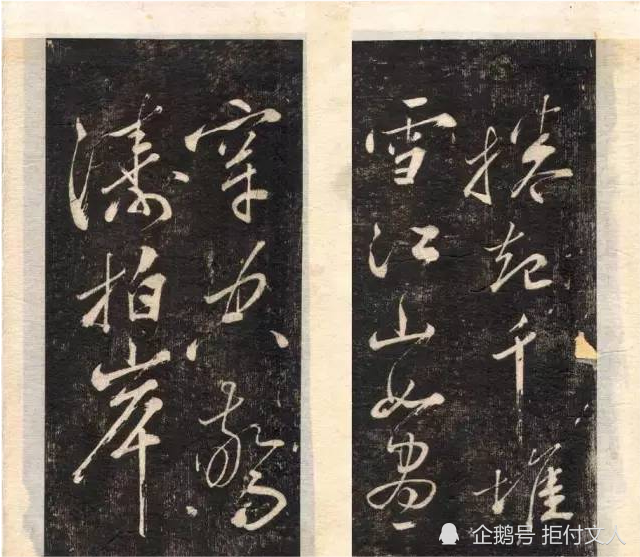 穿空驚
濤拍岸
捲起千堆
雪江山如畫一
企鹅号 拒付文人